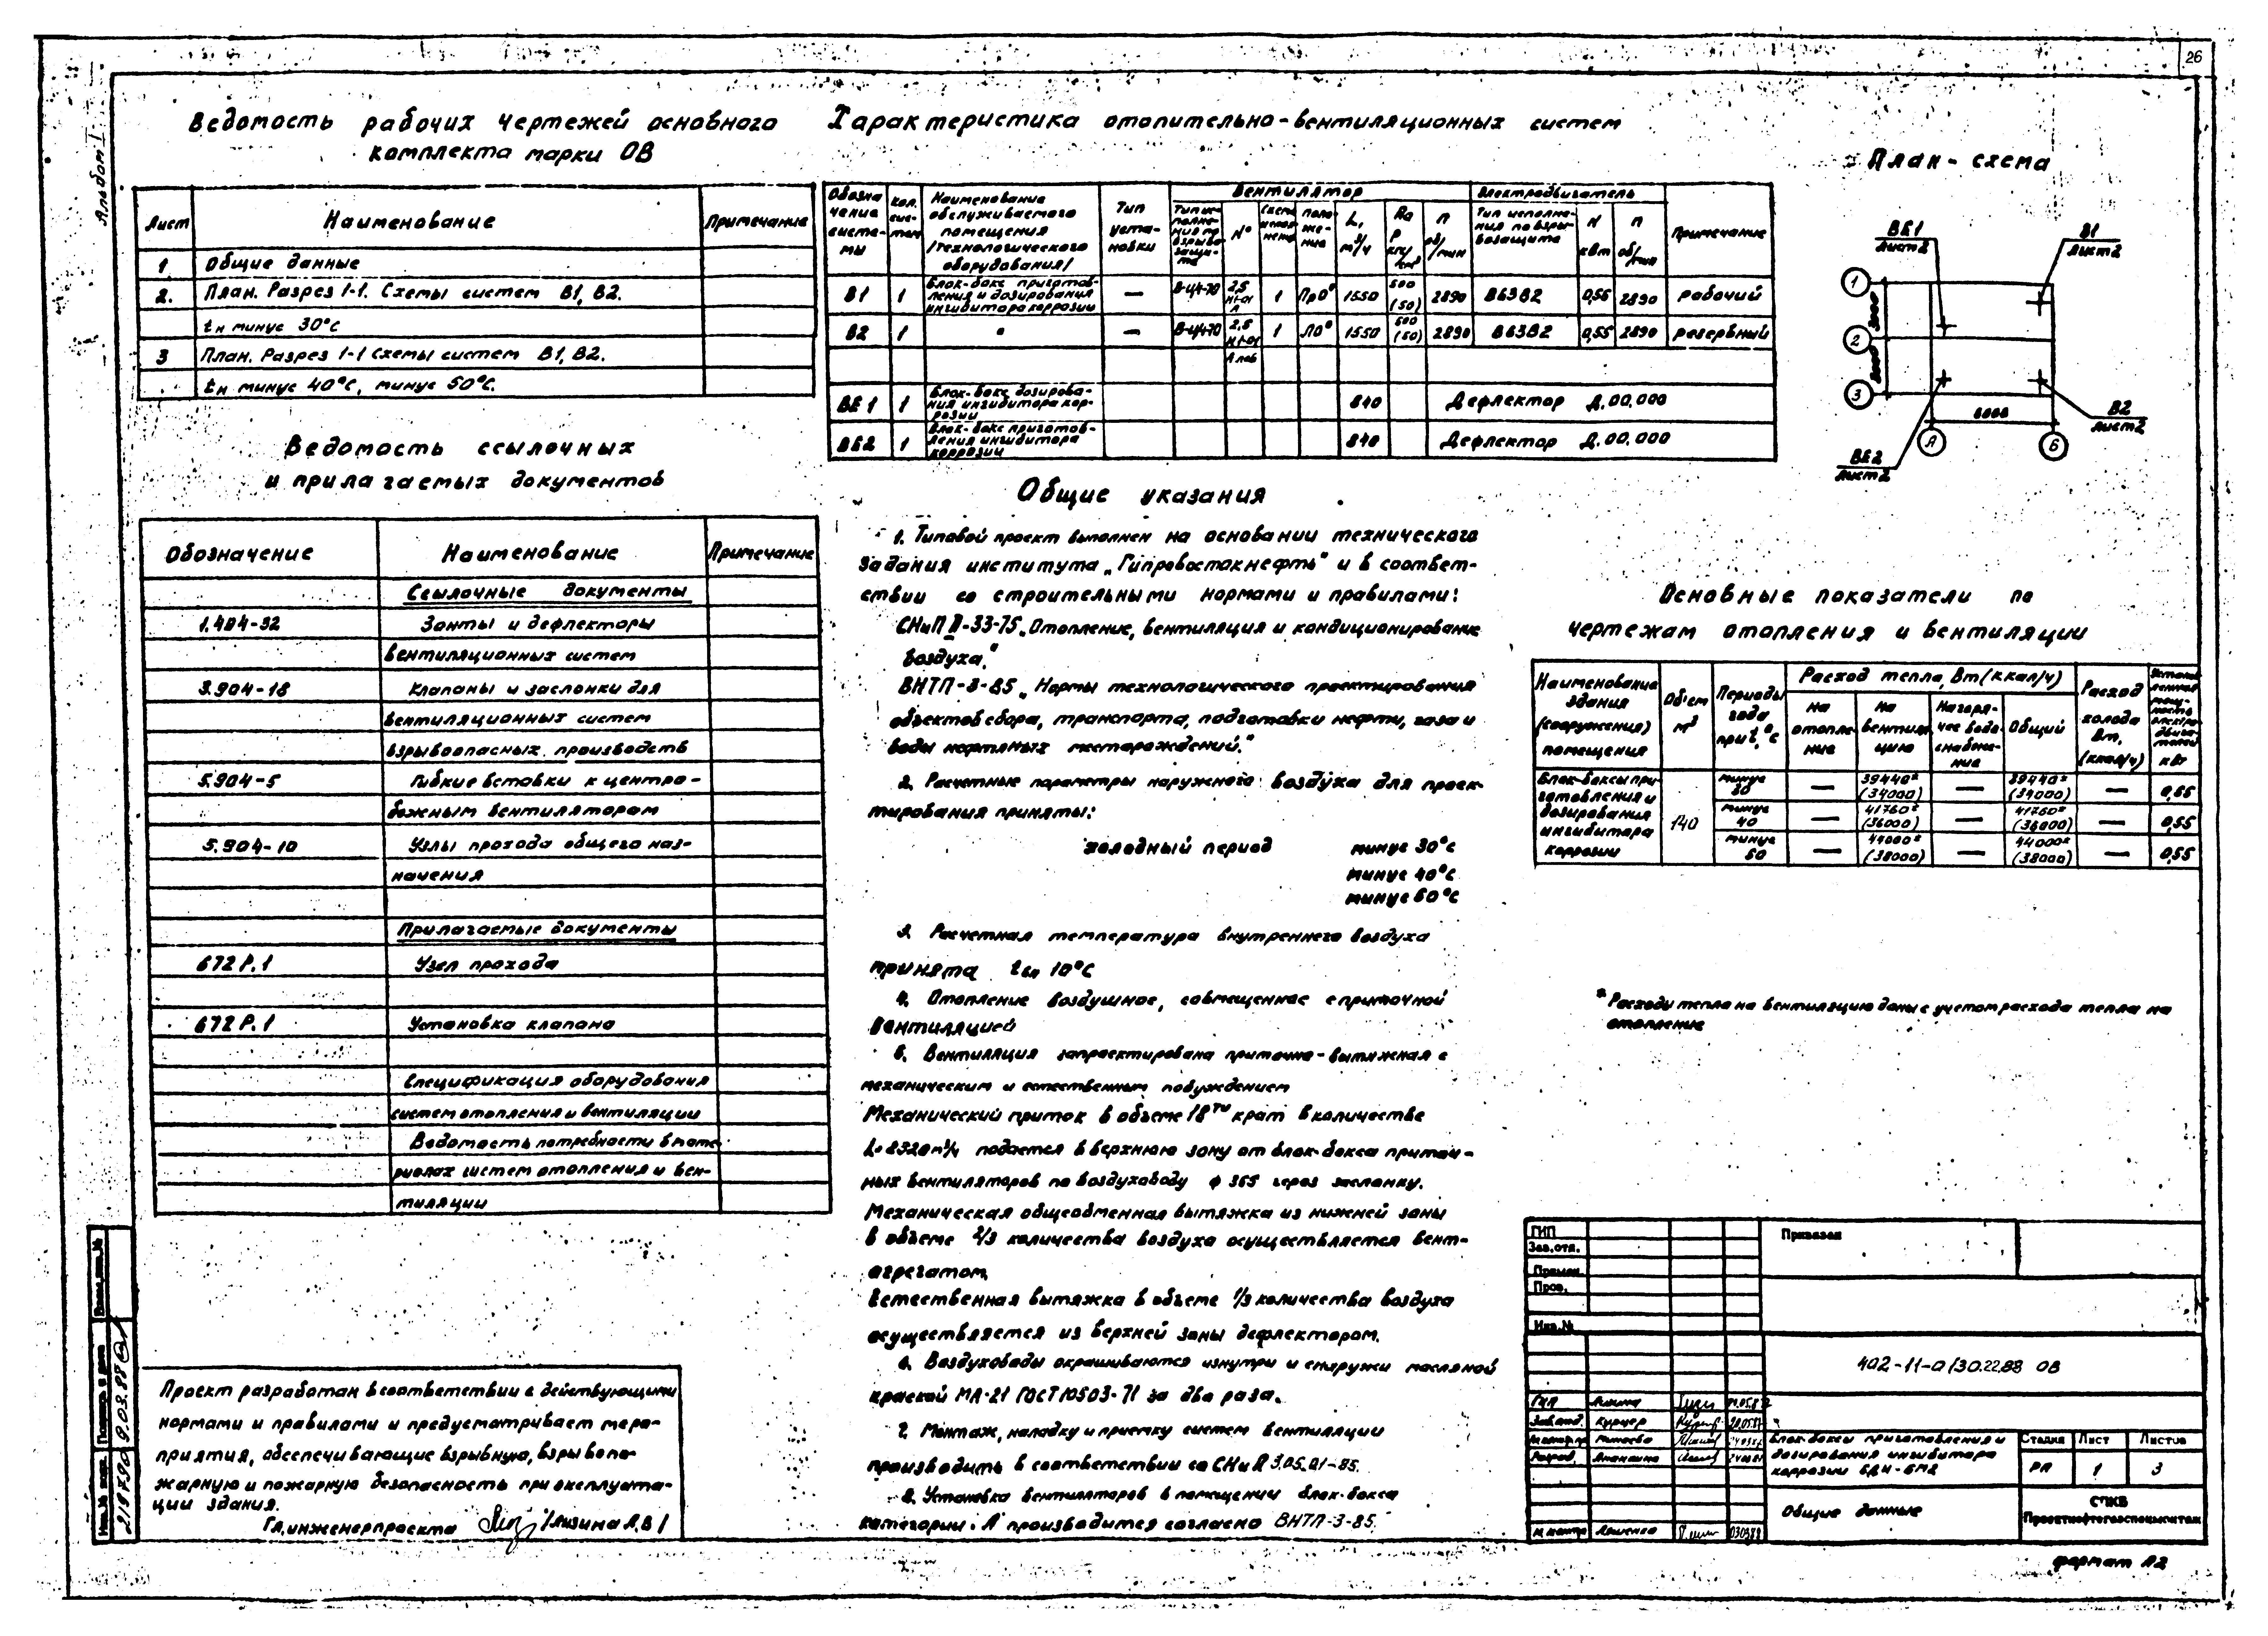 26
Альбом I
Ведомость рабочих чертежей основного
комплекта марки ОВ
Лист Наименование Примечание
1 Общие данные
2. План. Разрез 1-1. Схемы систем В1, В2.
tн минус 30°С
3 План. Разрез 1-1 Схемы систем В1, В2.
tн минус 40°С, минус 50°С.
Ведомость ссылочных
и прилагаемых документов
Обозначение Наименование Примечание
Ссылочные документы
1.494-32 Зонты и дефлекторы
вентиляционных систем
3.904-18 Клапаны и заслонки для
вентиляционных систем
взрывоопасных производств
5.904-5 Гибкие вставки к центро-
бежным вентиляторам
5.904-10 Узлы прохода общего наз-
начения
Прилагаемые документы
672 Р.1 Узел прохода
672 Р.1 Установка клапана
Спецификация оборудования
систем отопления и вентиляции
Ведомость потребности в мате-
риалах систем отопления и вен-
тиляции
Проект разработан в соответствии с действующими
нормами и правилами и предусматривает меро-
приятия, обеспечивающие взрывную, взрывопо-
жарную и пожарную безопасность при эксплуата-
ции здания.
Гл. инженер проекта /Лизина Л.В/
Характеристика отопительно-вентиляционных систем
Обозна
чение
систе-
мы
Кол.
сис-
тем
Наименование
обслуживаемого
помещения
/технологического
оборудования/
Тип
уста-
новки
Вентилятор
Тип ис-
полне-
ния по
взрыво
защи-
те
N°
Схема
испол-
нения
Поло-
же-
ние
L,
м³/ч
Па
Р
кгс/
см²
n
об/
мин
Электродвигатель
Тип исполне-
ния по взры-
возащите
N
квт
n
об/мин
Примечание
В1 1 Блок-бокс приготов-
ления и дозирования
ингибитора коррозии
— В-Ц4-70 2,5 1 Пр0° 1550 500 (50) 2890 В63В2 0,55 2890 рабочий
В2 1 " — В-Ц4-70 2,5 1 Л0° 1550 500 (50) 2890 В63В2 0,55 2890 резервный
ВЕ1 1 Блок-бокс дозирова-
ния ингибитора кор-
розии
840 Дефлектор Д.00.000
ВЕ2 1 Блок-бокс приготов-
ления ингибитора
коррозии
840 Дефлектор Д.00.000
Общие указания
1. Типовой проект выполнен на основании технического
задания института „Гипровостокнефть" и в соответ-
ствии со строительными нормами и правилами:
СНиП II-33-75 „Отопление, вентиляция и кондиционирование
воздуха."
ВНТП-3-85 „Нормы технологического проектирования
объектов сбора, транспорта, подготовки нефти, газа и
воды нефтяных месторождений."
2. Расчетные параметры наружного воздуха для проек-
тирования приняты:
холодный период минус 30°С
минус 40°С
минус 50°С
3. Расчетная температура внутреннего воздуха
принята tвн 10°С
4. Отопление воздушное, совмещенное с приточной
вентиляцией
5. Вентиляция запроектирована приточно-вытяжная с
механическим и естественным побуждением
Механический приток в объеме 18ти крат в количестве
L=2520м³/ч подается в верхнюю зону от блок-бокса приточ-
ных вентиляторов по воздуховоду ф 365 через заслонку.
Механическая общеобменная вытяжка из нижней зоны
в объеме 2/3 количества воздуха осуществляется вент-
агрегатом.
Естественная вытяжка в объеме 1/3 количества воздуха
осуществляется из верхней зоны дефлектором.
6. Воздуховоды окрашиваются изнутри и снаружи масляной
краской МА-21 ГОСТ 10503-71 за два раза.
7. Монтаж, наладку и приемку систем вентиляции
производить в соответствии со СНиП 3.05.01-85.
8. Установка вентиляторов в помещении блок-бокса
категории. А производится согласно ВНТП-3-85.
План-схема
ВЕ1
лист2
В1
лист2
1
2
3
3000
3000
6000
А
Б
В2
лист2
ВЕ2
лист2
Основные показатели по
чертежам отопления и вентиляции
Наименование
здания
(сооружения)
помещения
Объем
м³
Периоды
года
при t,°С
Расход тепла, Вт (ккал/ч)
на
отопле-
ние
на
вентиля-
цию
На горя-
чее водо-
снабже-
ние
Общий
Расход
холода
Вт.
(ккал/ч)
Установ-
ленная
мощ-
ность
электро-
двига-
телей
кВт
Блок-боксы при-
готовления и
дозирования
ингибитора
коррозии
140
минус 30 — 39440* (34000) — 39440* (34000) — 0,55
минус 40 — 41760* (36000) — 41760* (36000) — 0,55
минус 50 — 44000* (38000) — 44000* (38000) — 0,55
* Расходы тепла на вентиляцию даны с учетом расхода тепла на
отопление
ГИП
Зав.отд.
Примен.
Пров.
Инв.№
Привязан
402-11-0130.22.88 ОВ
ГИП Лизина
Зав.отд. Курцер
Разраб. Ананьина
Н.контр Лященко 030388
Блок-боксы приготовления и
дозирования ингибитора
коррозии БДИ-БМ2
Стадия Лист Листов
РП 1 3
Общие данные
СПКБ
Проектнефтегазспецмонтаж
формат А2
Взам.инв.№
Подпись и дата
9.03.88
Инв.№ подл.